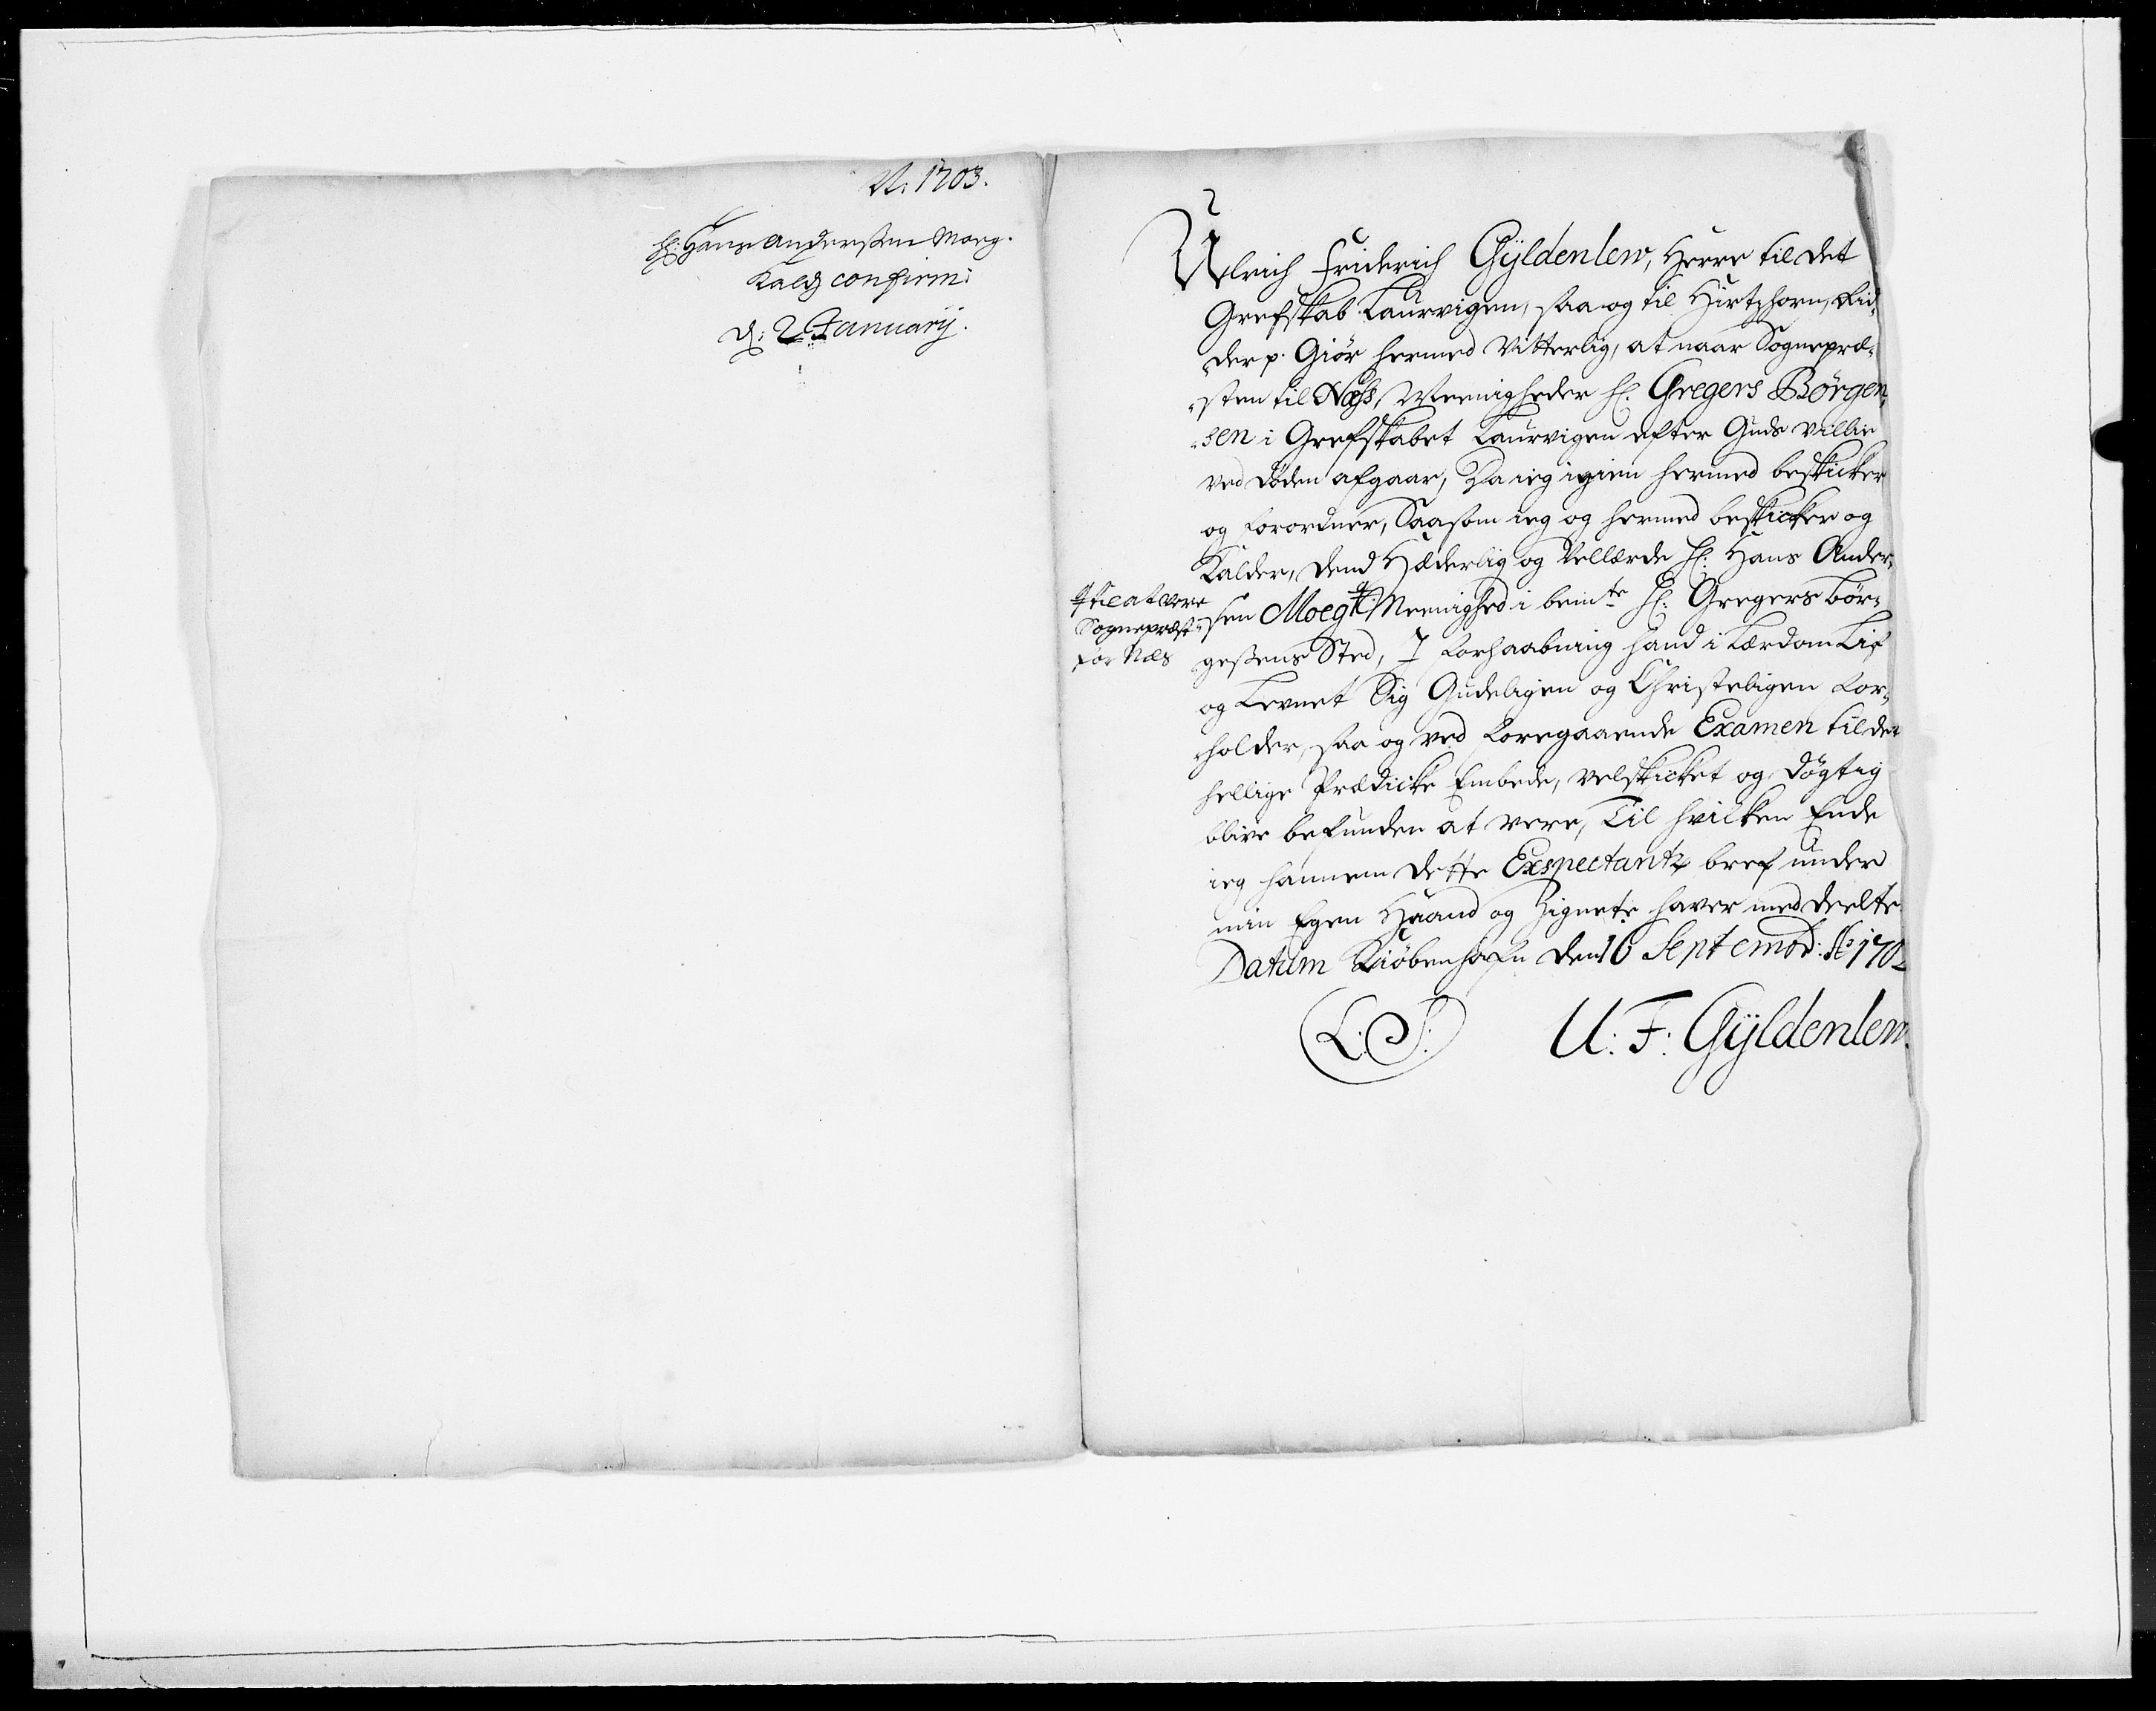 A: 1703.
H: Hans Anderssen Moeg.
Kalds confirm:
d: 2. January.
Ulrich Friderich Gyldenlew, Herre til det
Grefskab Laurvigen, saa og til Hirtzhorn, Rid¬
¬der p. Giør hermed Vitterlig, at naar Sognepræ¬
¬sten til Næss, Meenigheder H. Gregers Börgen¬
¬sen i Grefskabet Laurvigen efter Guds villie
ved døden afgaar, Da ieg igien hermed beskicker
og forordner, Saasom ieg og hermed beskicker og
Kalder, dend Hæderlig og Vellærde H: Hans Ander¬
sen Moeg # Meenighed i bemte H: Gregers Bør¬
# til at vere
Sogneprest
for Næs
gessens Sted, I forhaabning hand i Lærdom Lif
og Levnet Sig Gudeligen og Christeligen for¬
holder, saa og ved foregaaende Examen til det
hellige Prædicke Embede, velskicket og døgtig
blive befunden at vere, Til hvilken Ende
ieg hannem dette Exspectantz bref under
min Egen Haand og Zignete haver meddeelte.
Datum Kiøbenhafn den 16 Septembr: Ao 1702
L: S: U: F: Gyldenlew.